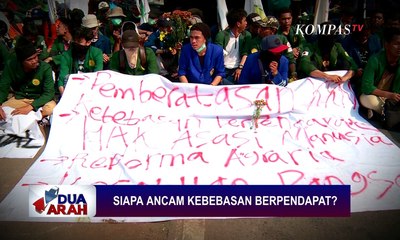 KOMPAS TV
- Pemberatasan
- Kebebasan
HAK Asasi Manusia
- Reforma Agraria
DUA ARAH
SIAPA ANCAM KEBEBASAN BERPENDAPAT?